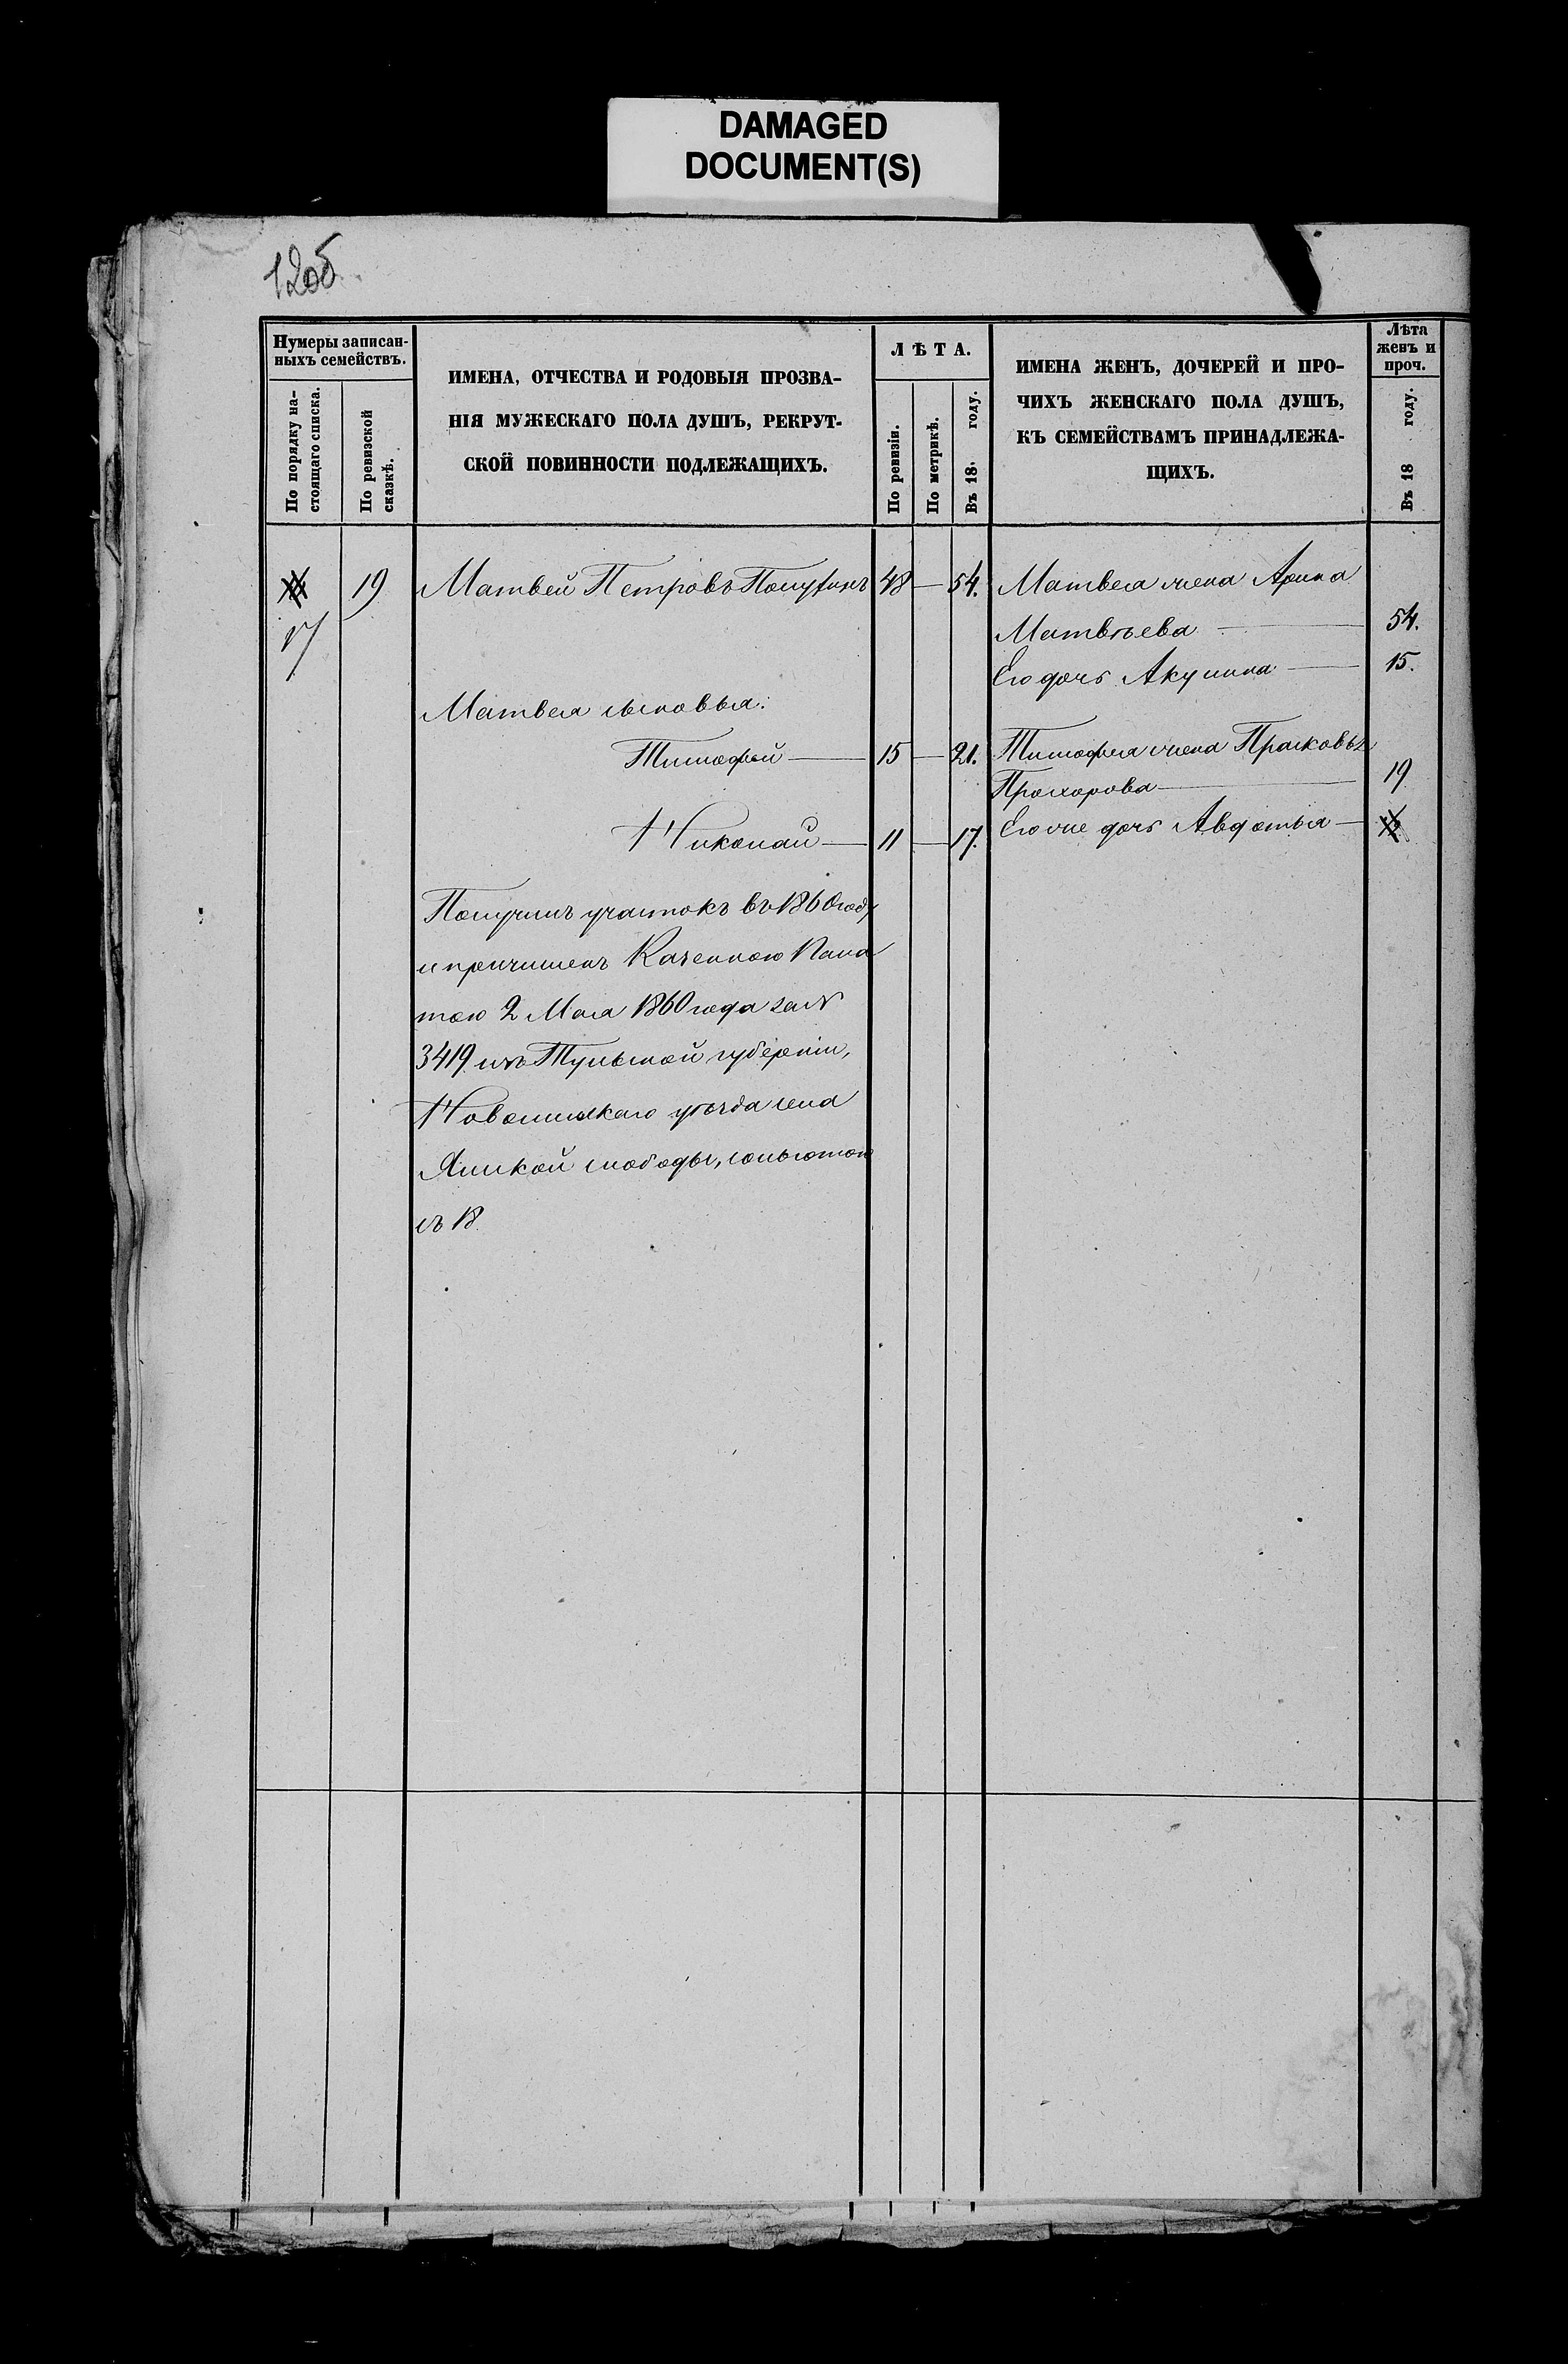 DAMAGED
DOCUMENT(S)
120б
Нумеры записан-
ныхъ семействъ.
По порядку на-
стоящаго списка.
По ревизской
сказкѣ.
ИМЕНА, ОТЧЕСТВА И РОДОВЫЯ ПРОЗВА-
НІЯ МУЖЕСКАГО ПОЛА ДУШЪ, РЕКРУТ-
СКОЙ ПОВИННОСТИ ПОДЛЕЖАЩИХЪ.
ЛѢТА.
По ревизіи.
По метрикѣ.
Въ 18 году.
ИМЕНА ЖЕНЪ, ДОЧЕРЕЙ И ПРО-
ЧИХЪ ЖЕНСКАГО ПОЛА ДУШЪ,
КЪ СЕМЕЙСТВАМЪ ПРИНАДЛЕЖА-
ЩИХЪ.
Лѣта
женъ и
проч.
Въ 18 году.
19 Матвей Петровъ 48 — 54. Матвея жена Арина
17
Матвѣева — 54.
Его дочь Акулина — 15.
Матвея сыновья:
Тимофей — 15 — 21. Тимофея жена Прасковья
Прохорова — 19
Николай — 11 — 17. Его же дочь Авдотья —
Получилъ участокъ въ 1860 году
и причисленъ Казенною Пала
тою 2 Мая 1860 года за №
3419 изъ Тульской губерніи,
Новосильскаго уѣзда села
Ямской слободы, сольготою
съ 18